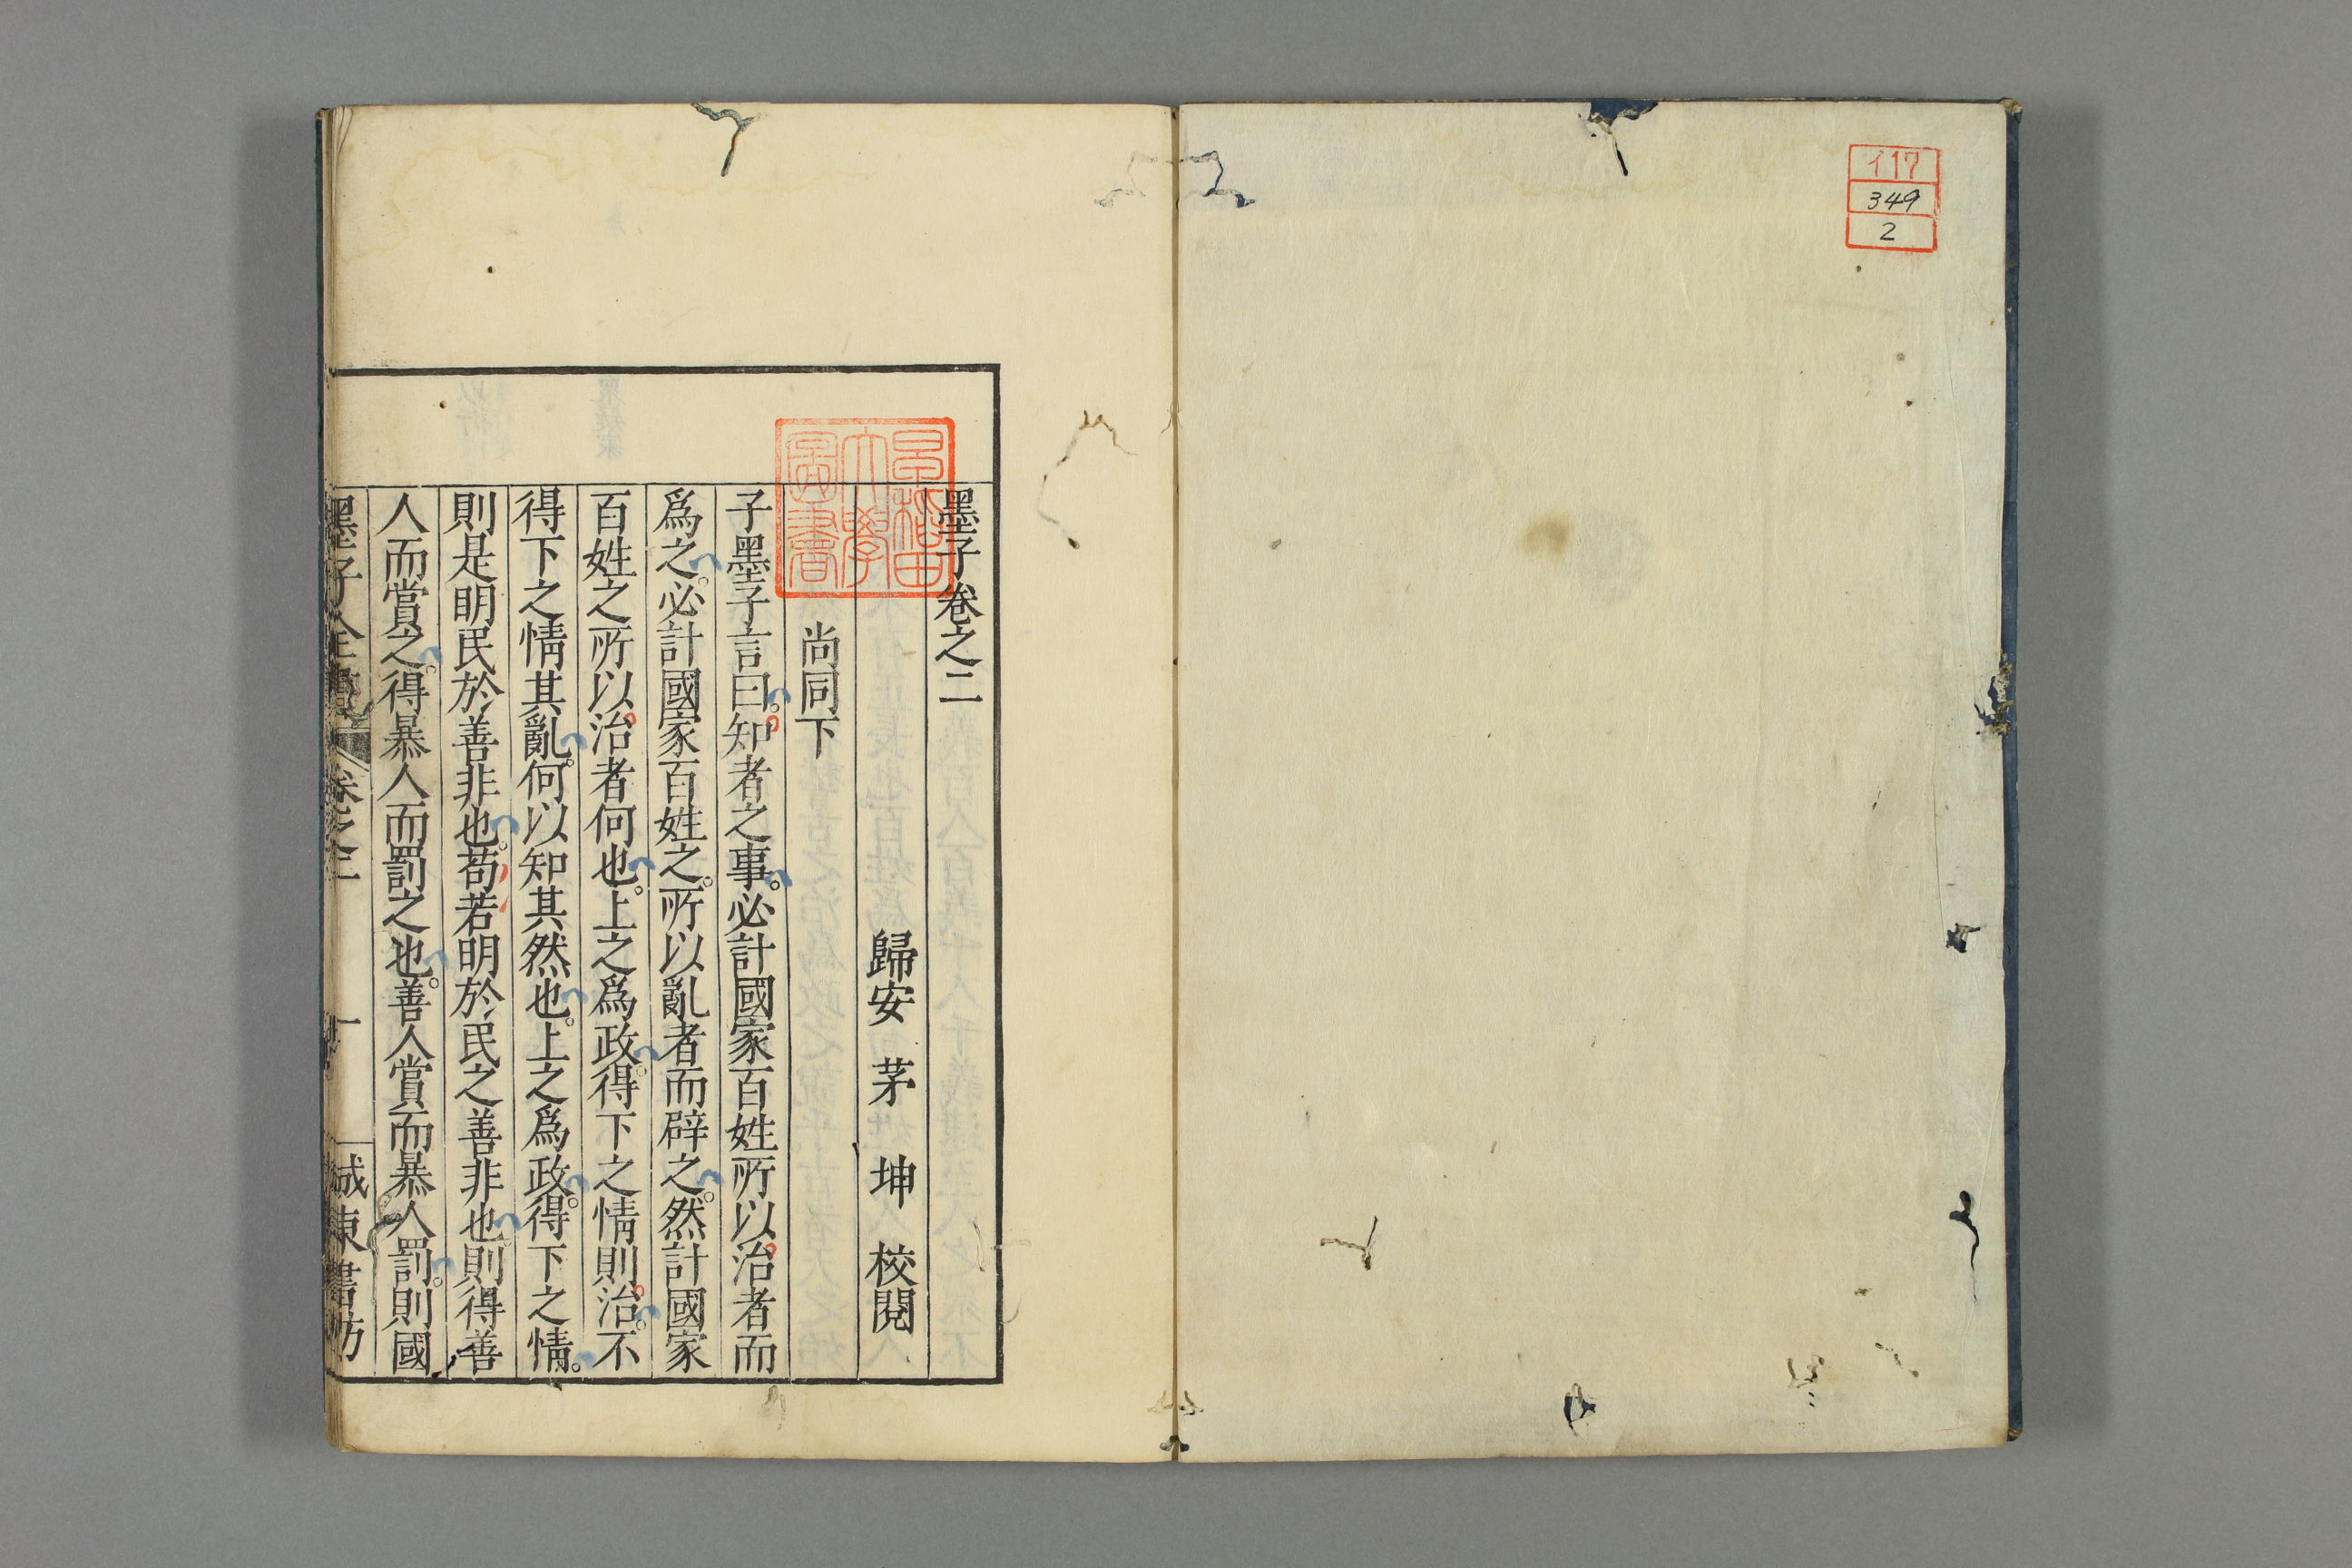 イ17
349
2
早稲田
大學
圖書
墨子卷之二
歸安 茅 坤 校閱
尚同下
子墨子言曰。知者之事。必計國家百姓所以治者而
爲之。必計國家百姓之。所以亂者而辟之。然計國家
百姓之所以治者何也。上之爲政。得下之情則治。不
得下之情其亂。何以知其然也。上之爲政。得下之情。
則是明民於善非也。苟若明於民之善非也。則得善
人而賞之。得暴人而罰之也。善人賞而暴人罰。則國
墨子全書 卷之二 一 城東書坊